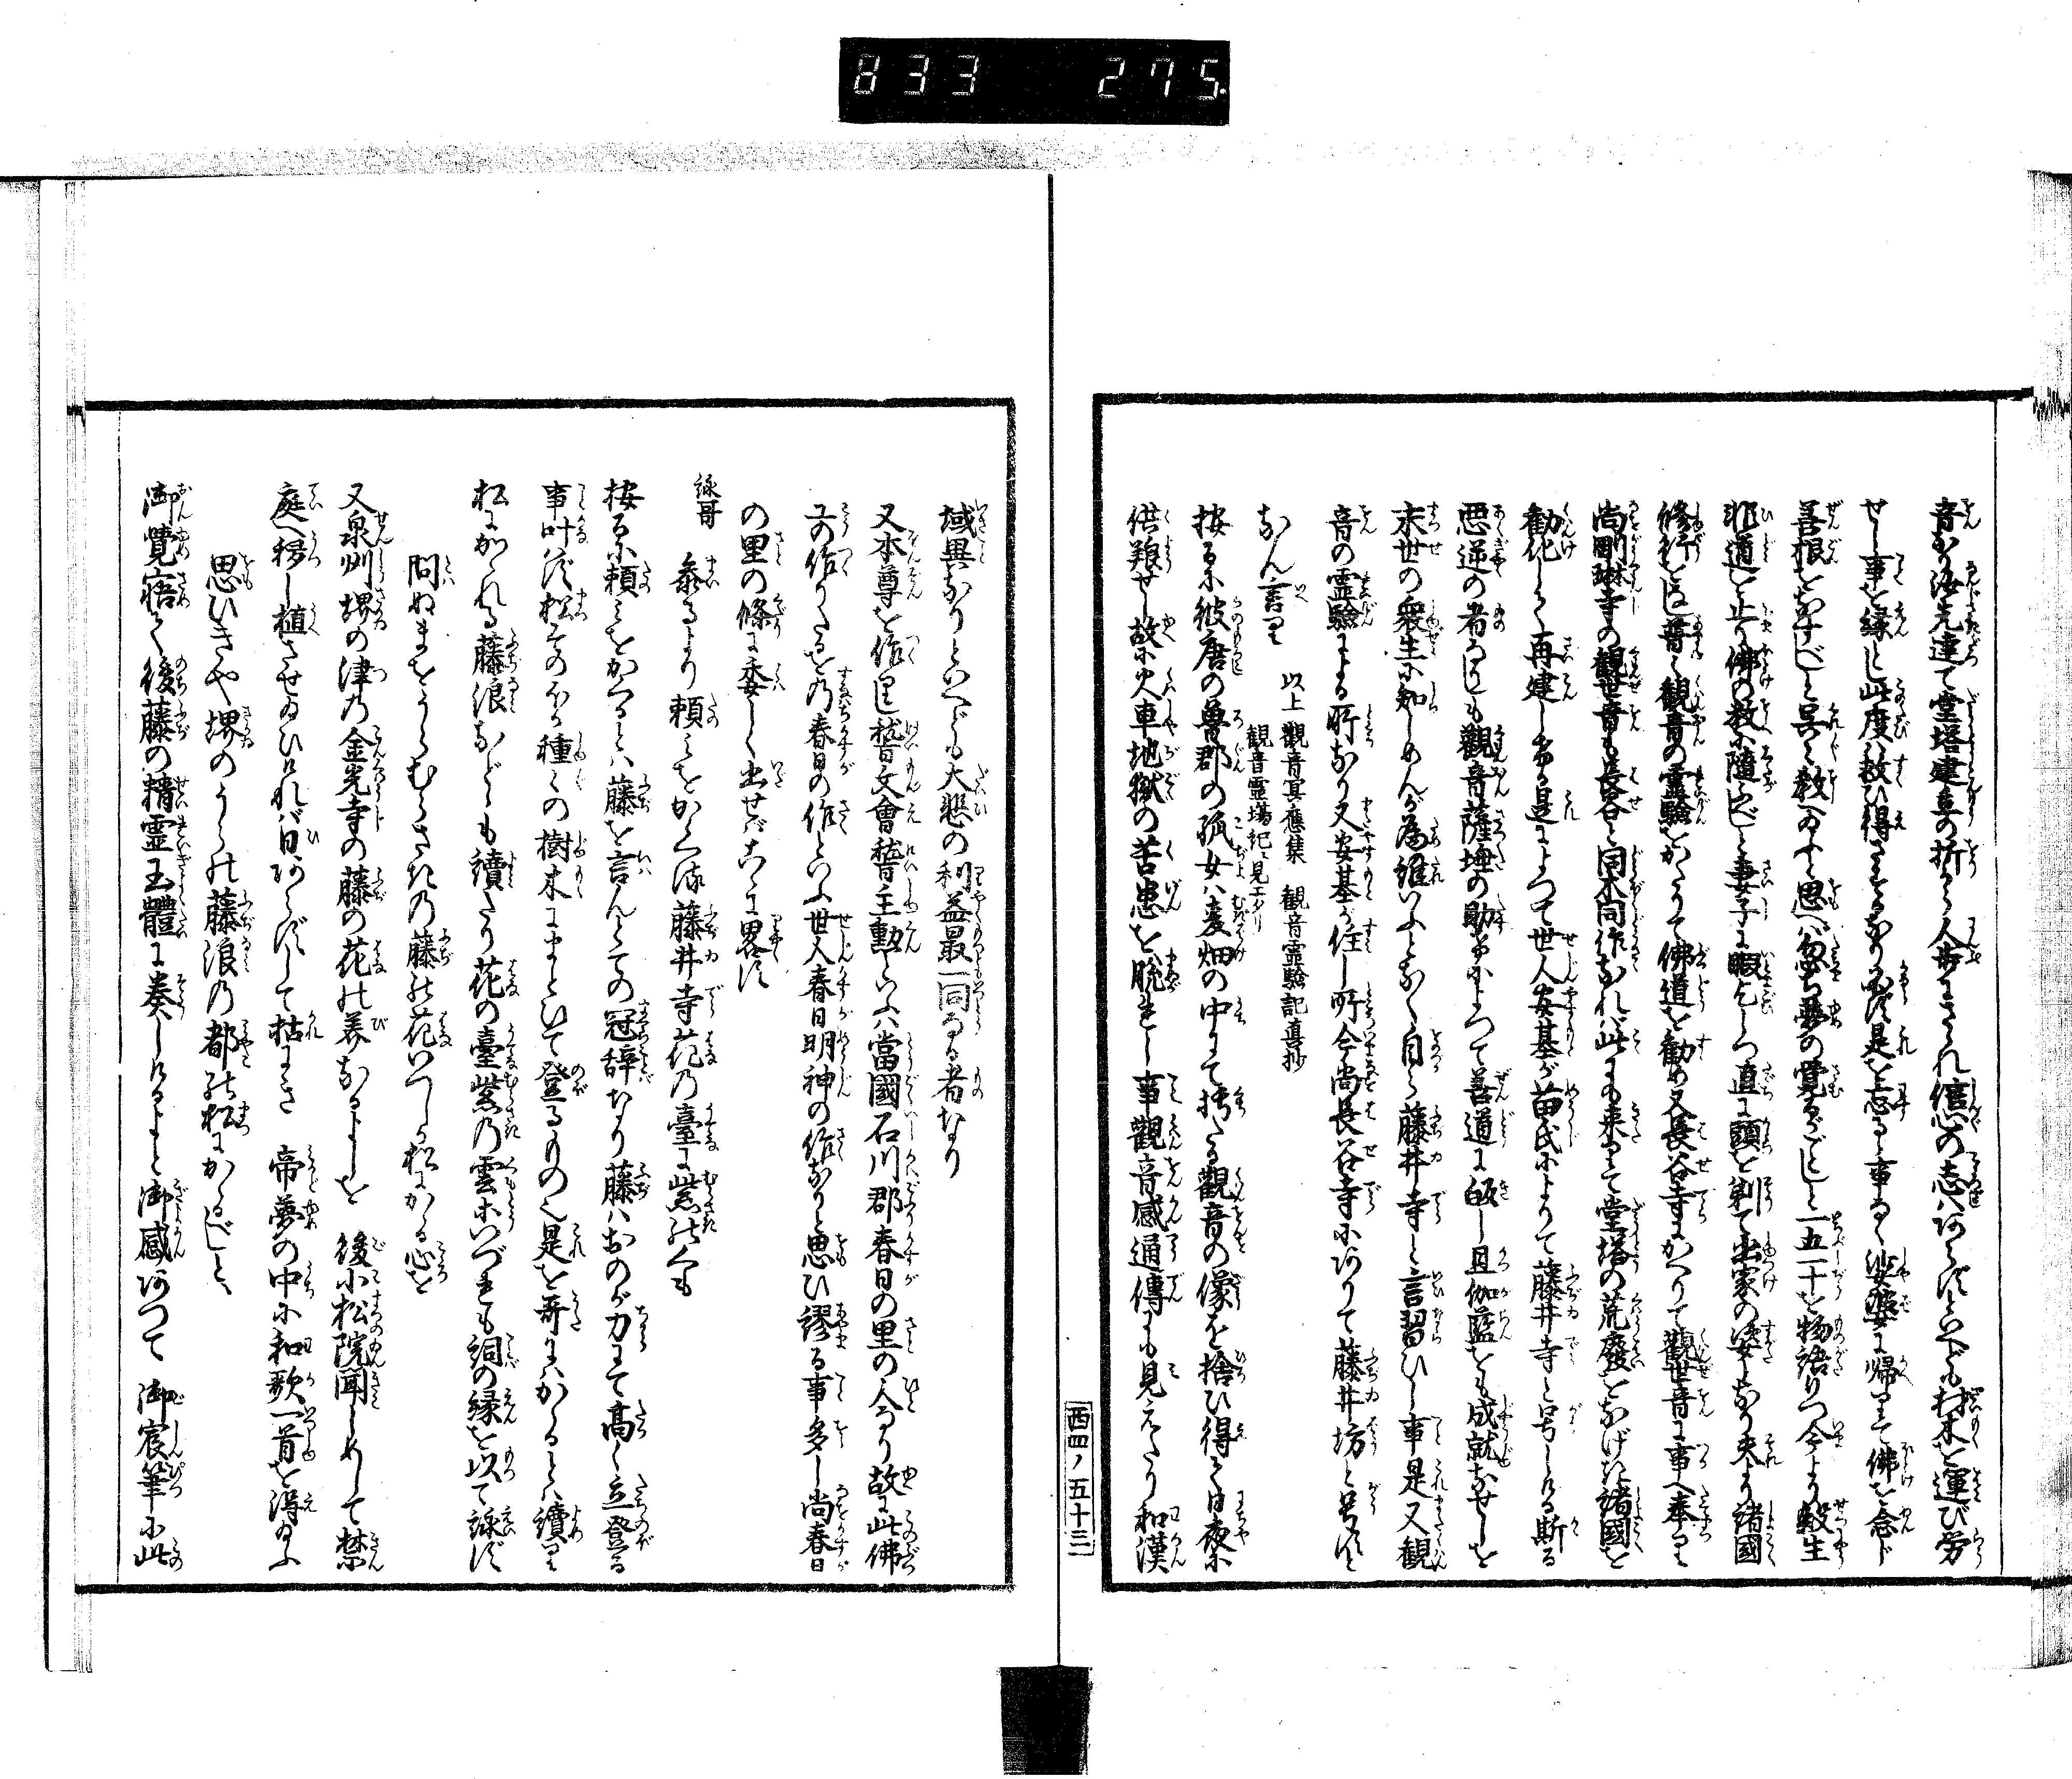 833 275.
音なり汝先達て堂塔建立の折から人歩にさゝれ信心の志ハあらずといへども材木を運び労
せし事を縁とし此度ハ救ひ得さするなり必ず是を忘るゝ事なく娑婆に帰りて佛を念じ
善根をなすべしと具に教へ給ふと思へバ忽ち夢の覚るがごとしと一五一十を物語りつ今より殺生
非道を止て佛の教に随ふべしと妻子に暇乞しつ直に頭を剃て出家の姿となり夫より諸國
修行をし普く観音の霊験をかたりて佛道を勧め又長谷寺にかへりて観世音に事へ奉りき
尚剛琳寺の観世音も長谷と同木同作なれバ此にも来りて堂塔の荒廢をなげき諸國を
勧化して再建しける是によつて世人安基が苗氏によりて藤井寺と号しける斯る
悪逆の者なりしも観音薩埵の助けによつて善道に皈し且伽藍をも成就なせしを
末世の衆生に知しめんが為雖いふとなく自ら藤井寺と言習ひし事是又観
音の霊驗による所なり又安基が住し所今尚長谷寺にありて藤井坊と号すと
なん言り
以上 觀音冥應集 観音霊驗記真抄
観音霊場記ニ見エタリ
按るに彼唐の魯郡の孤女ハ麦畑の中にて拷たる觀音の像を捨ひ得て日夜に
供養せし故に火車地獄の苦患を脱れし事觀音感通傳にも見えたり和漢
西四ノ五十三
域異なりといへども大悲の利益最一同なる者なり
又本尊を作りし稽文會稽主勳といふハ當國石川郡春日の里の人なり故に此佛
工の作りたるを乃春日の作といふ世人春日明神の作なりと思ひ謬る事多し尚春日
の里の條に委しく出せバこゝに畧す
詠哥 参るより頼みをかくる藤井寺花の臺に紫のくも
按るに頼みをかくるとハ藤を言んとての冠辞なり藤ハおのが力にて高く立登る
事叶はず松そのほか種々の樹木にまとひて登るもの也是を哥にハかゝるとハ讀り
松にかゝれる藤浪などゝも續たり花の臺紫乃雲といづれも詞の縁を以て詠ず
問ぬまをうらむらさきの藤の花いつしか松にかゝる心を
又泉州堺の津乃金光寺の藤の花の美なるよしを 後小松院聞しめして禁
庭へ移し植させ給ひければ日あらずして枯にき 帝夢の中に和歌一首を得給ふ
思ひきや堺のうらの藤浪の都の松にかゝるべしとハ
御覺寤て後藤の精霊玉體に奏しけるよと御感あつて 御宸筆に此